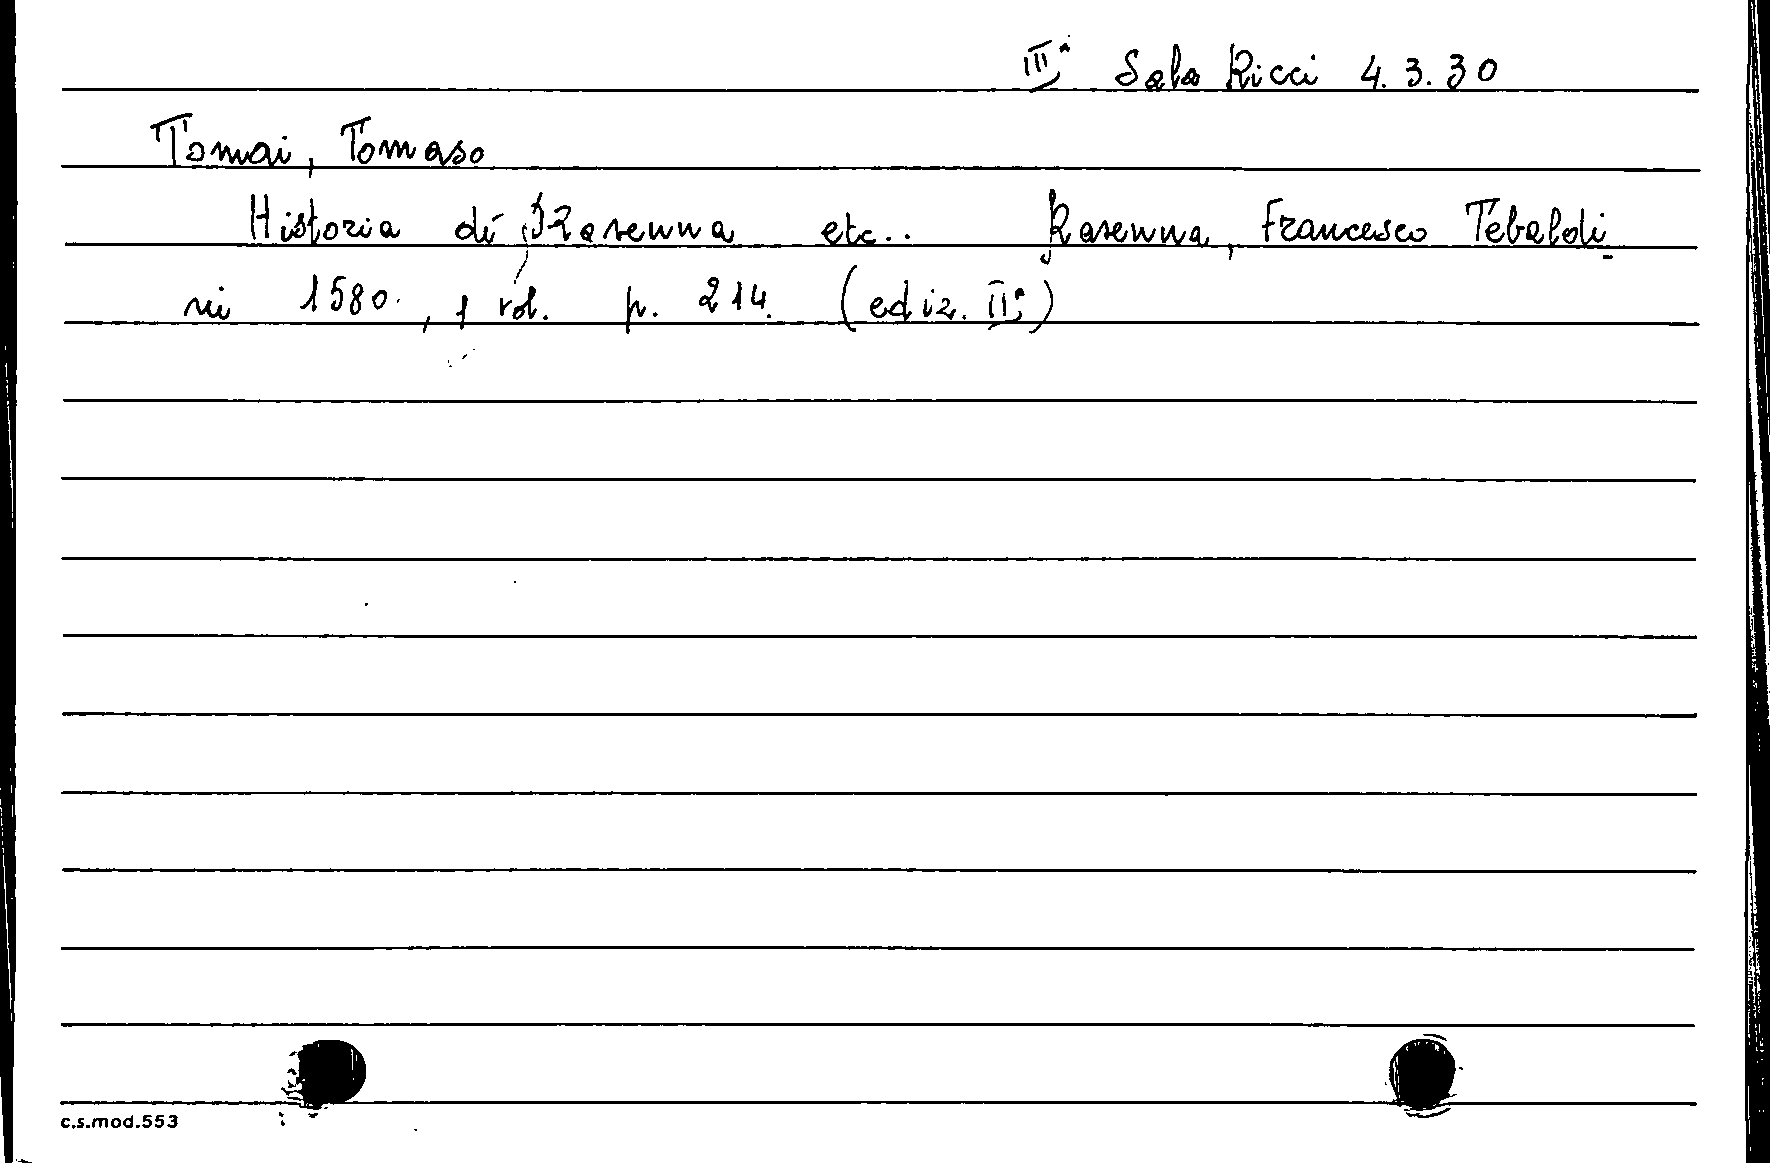 IIIª Sala Ricci 4.3.30
Tomai, Tomaso
Historia di Ravenna etc.. Ravenna, Francesco Tebaldi-
ni 1580., 1 vol. p. 214. (ediz. IIª)
c.s.mod.553